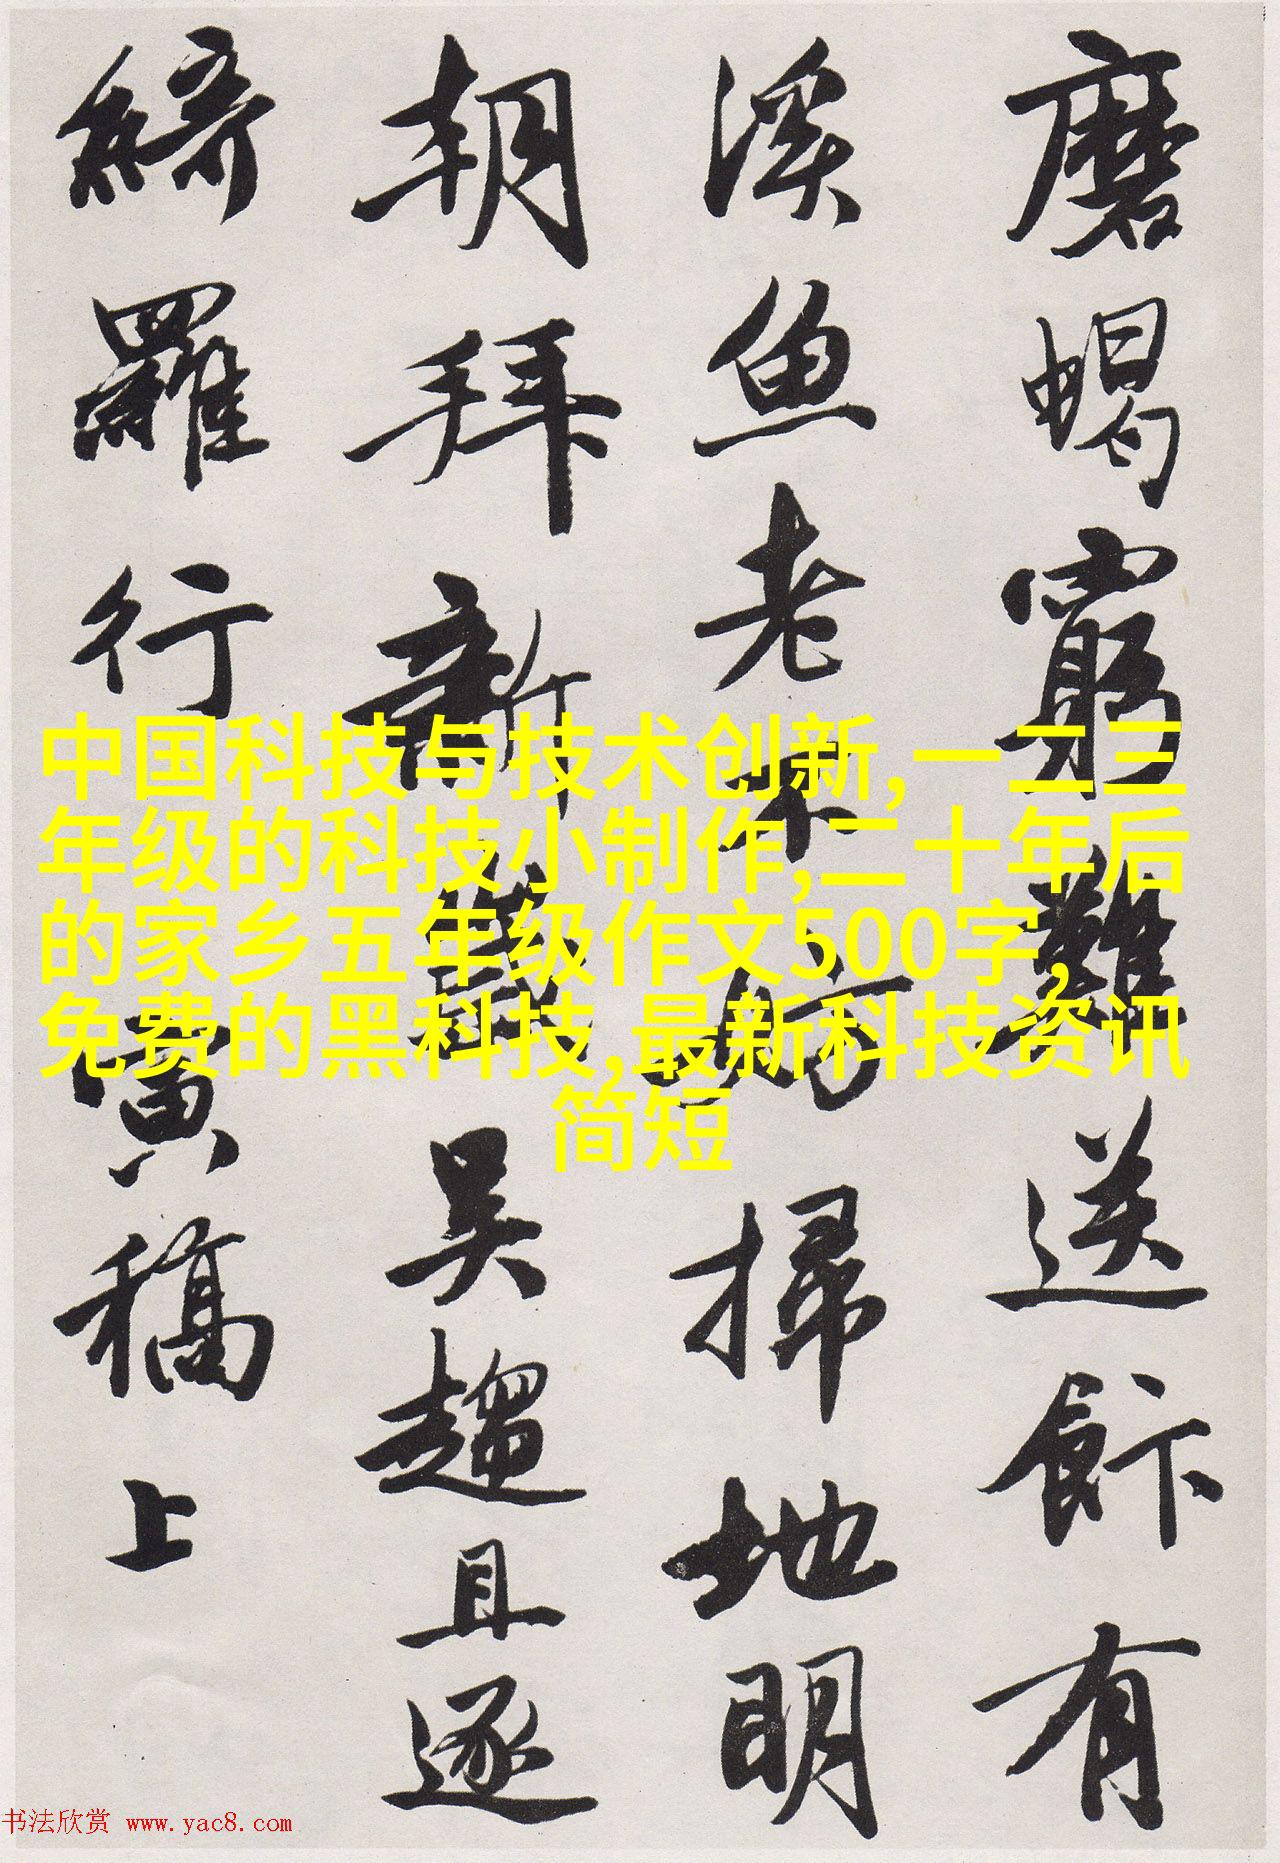 磨蝎窮難送飰有
溪鱼老不妨掃地明
朝拜新歲吴趨且逐
綺羅行寅稿上
中国科技与技术创新,一二三
年级的科技小制作,二十年后
的家乡五年级作文500字,
免费的黑科技,最新科技资讯
简短
书法欣赏 www.yac8.com